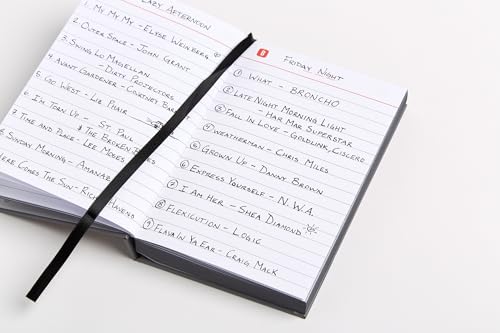 LAZY AFTERNOON
1. MY MY MY - ELYSE WEINBERG
2. OUTER SPACE - JOHN GRANT
3. SWING LO MAGELLAN
- DIRTY PROJECTORS
4. AVANT GARDENER - COURTNEY BAR
5. GO WEST - LIZ PHAIR
6. I'M TORN UP - ST. PAUL
& THE BROKEN BONES
7. TIME AND PLACE - LEE MOSES
8. SUNDAY MORNING - AMANAZ
HERE COMES THE SUN - RICHIE HAVENS
8 FRIDAY NIGHT
① WHAT - BRONCHO
② LATE NIGHT MORNING LIGHT
- HAR MAR SUPERSTAR
③ FALL IN LOVE - GOLDLINK, CISCERO
④ WEATHERMAN - CHRIS MILES
⑤ GROWN UP - DANNY BROWN
⑥ EXPRESS YOURSELF - N.W.A.
⑦ I AM HER - SHEA DIAMOND
⑧ FLEXICUTION - LOGIC
⑨ FLAVA IN YA EAR - CRAIG MACK